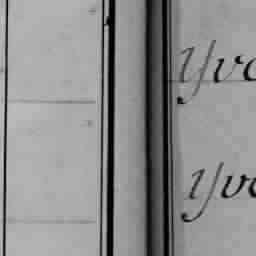 Yvo
Yvo